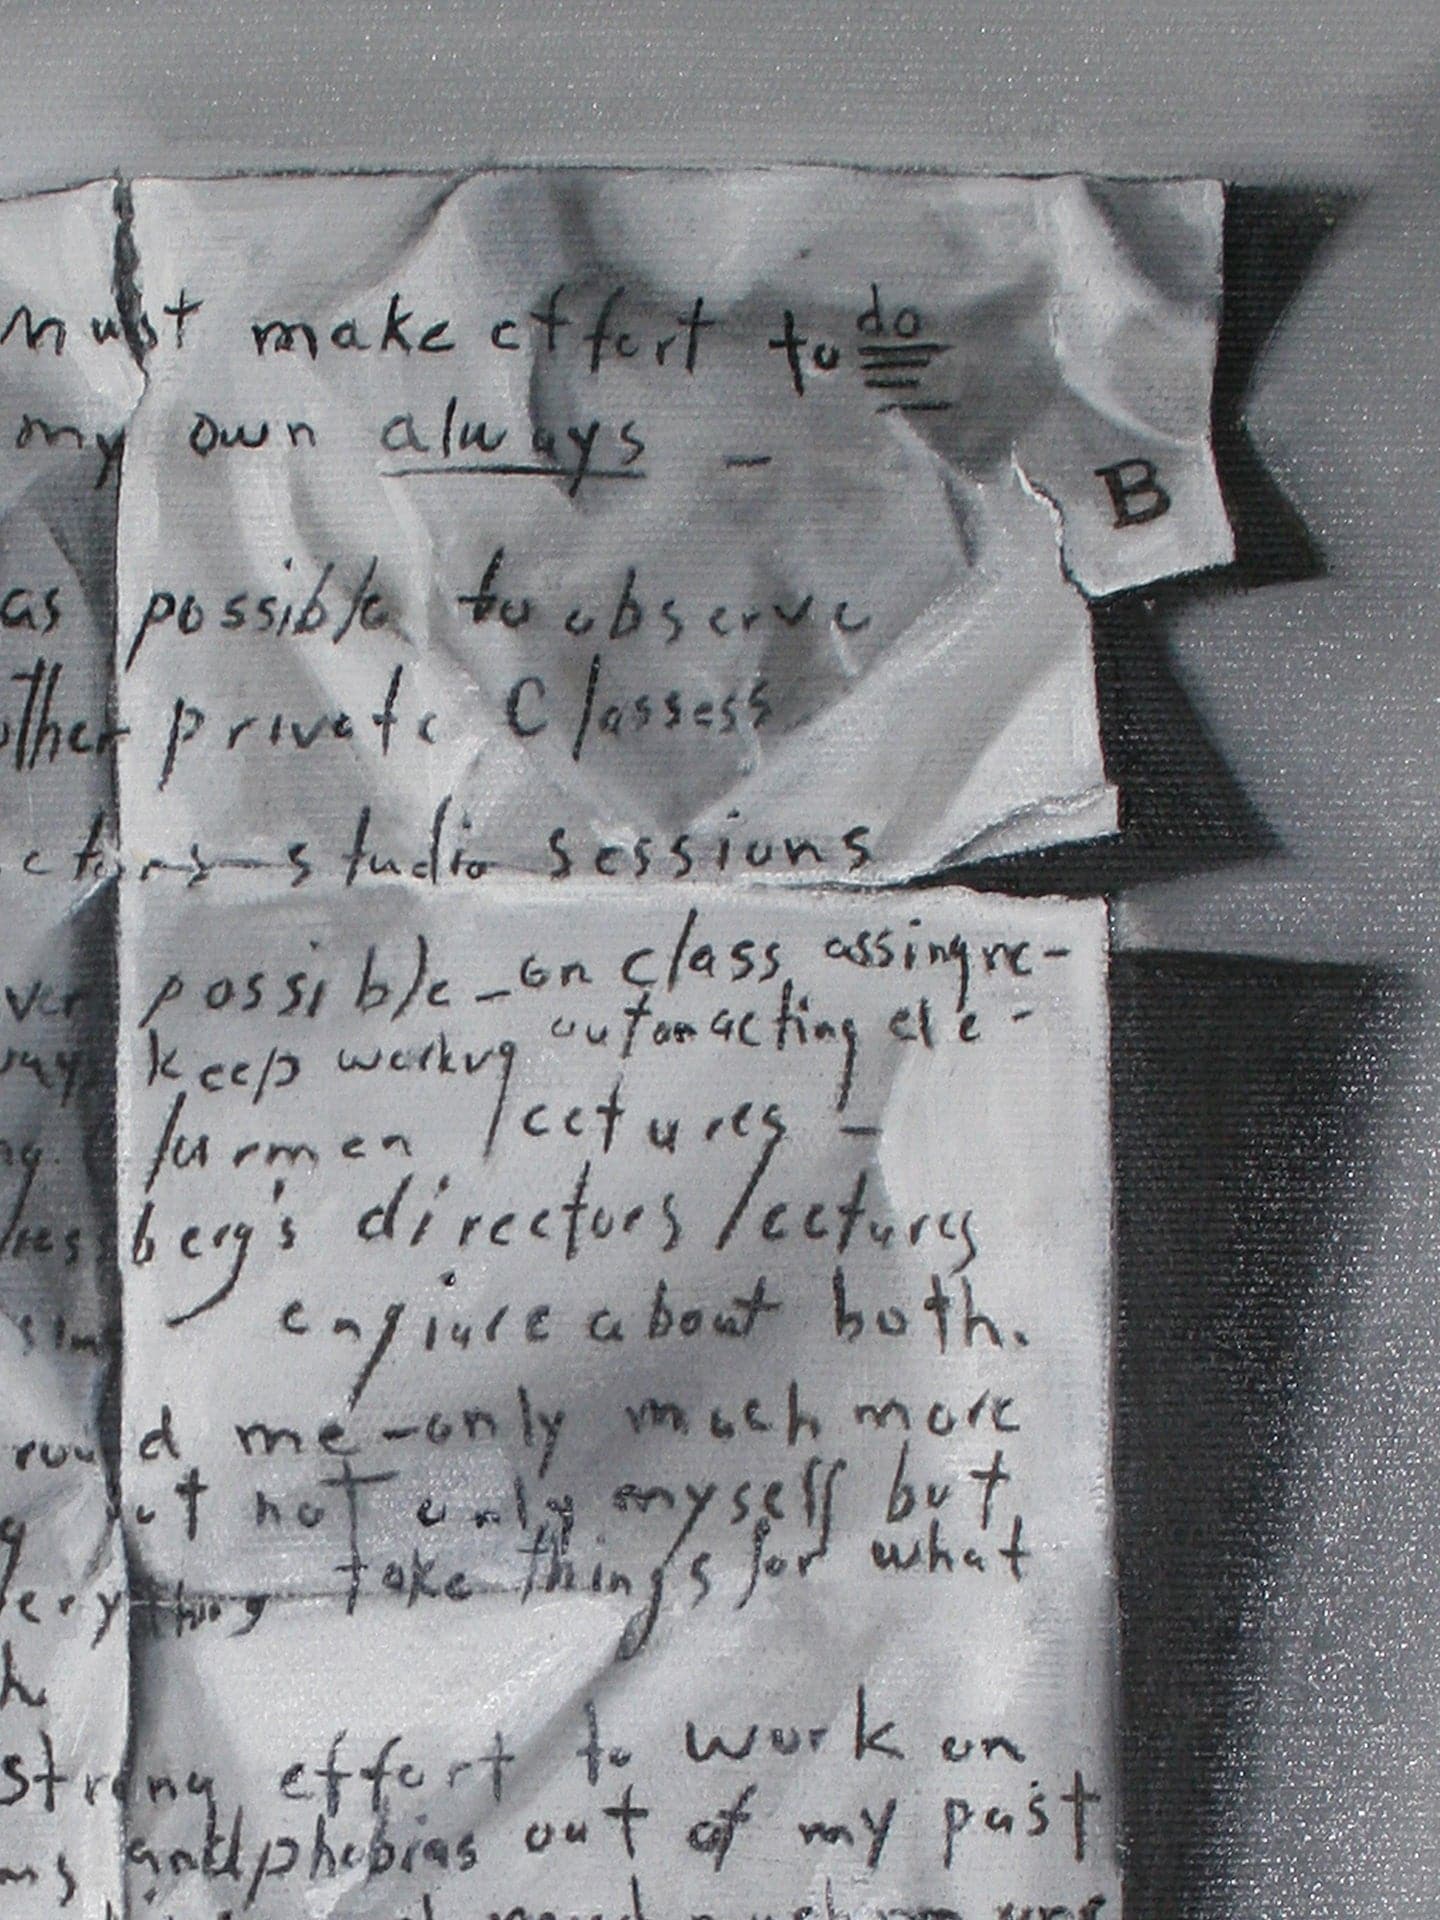 must make effort to do
my own always -
B
as possible to observe
other private Classess
ctors studio sessions
ver possible - on class assingne-
keep workng out on acting ele-
ng. lurmen lectures -
berg's directors lectures
- enqiure about both.
round me - only much more
ut not only myself but
erything take things for what
strong effort to work on
ms and phobias out of my past